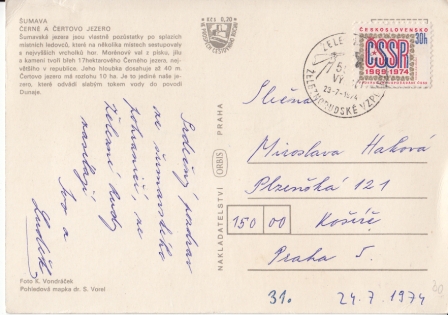 ŠUMAVA
ČERNÉ A ČERTOVO JEZERO
Šumavská jezera jsou vlastně pozůstatky po splazích
místních ledovců, které na několika místech sestupovaly
z nejvyšších vrcholků hor. Morénový val z písku, jílu
a kamení tvoří břeh 17hektarového Černého jezera, nej-
většího v republice. Jeho hloubka dosahuje až 40 m.
Čertovo jezero má rozlohu 10 ha. Je to jediné naše je-
zero, které odvádí slabým tokem vody do povodí
Dunaje.
Srdečný pozdrav
ze šumavského
pohraničí, ze
Železné Rudy
zasílají
Iva a
Luděk
Foto K. Vondráček
Pohledová mapka dr. S. Voral
NAKLADATELSTVÍ ORBIS PRAHA
ČESKOSLOVENSKO
30h
ČSSR
1969 1974
ŽELEZNORUDSKÉ
Slečna
Miroslava Haková
Plzeňská 121
150 00 Košíře
Praha 5.
31. 24.7.1974